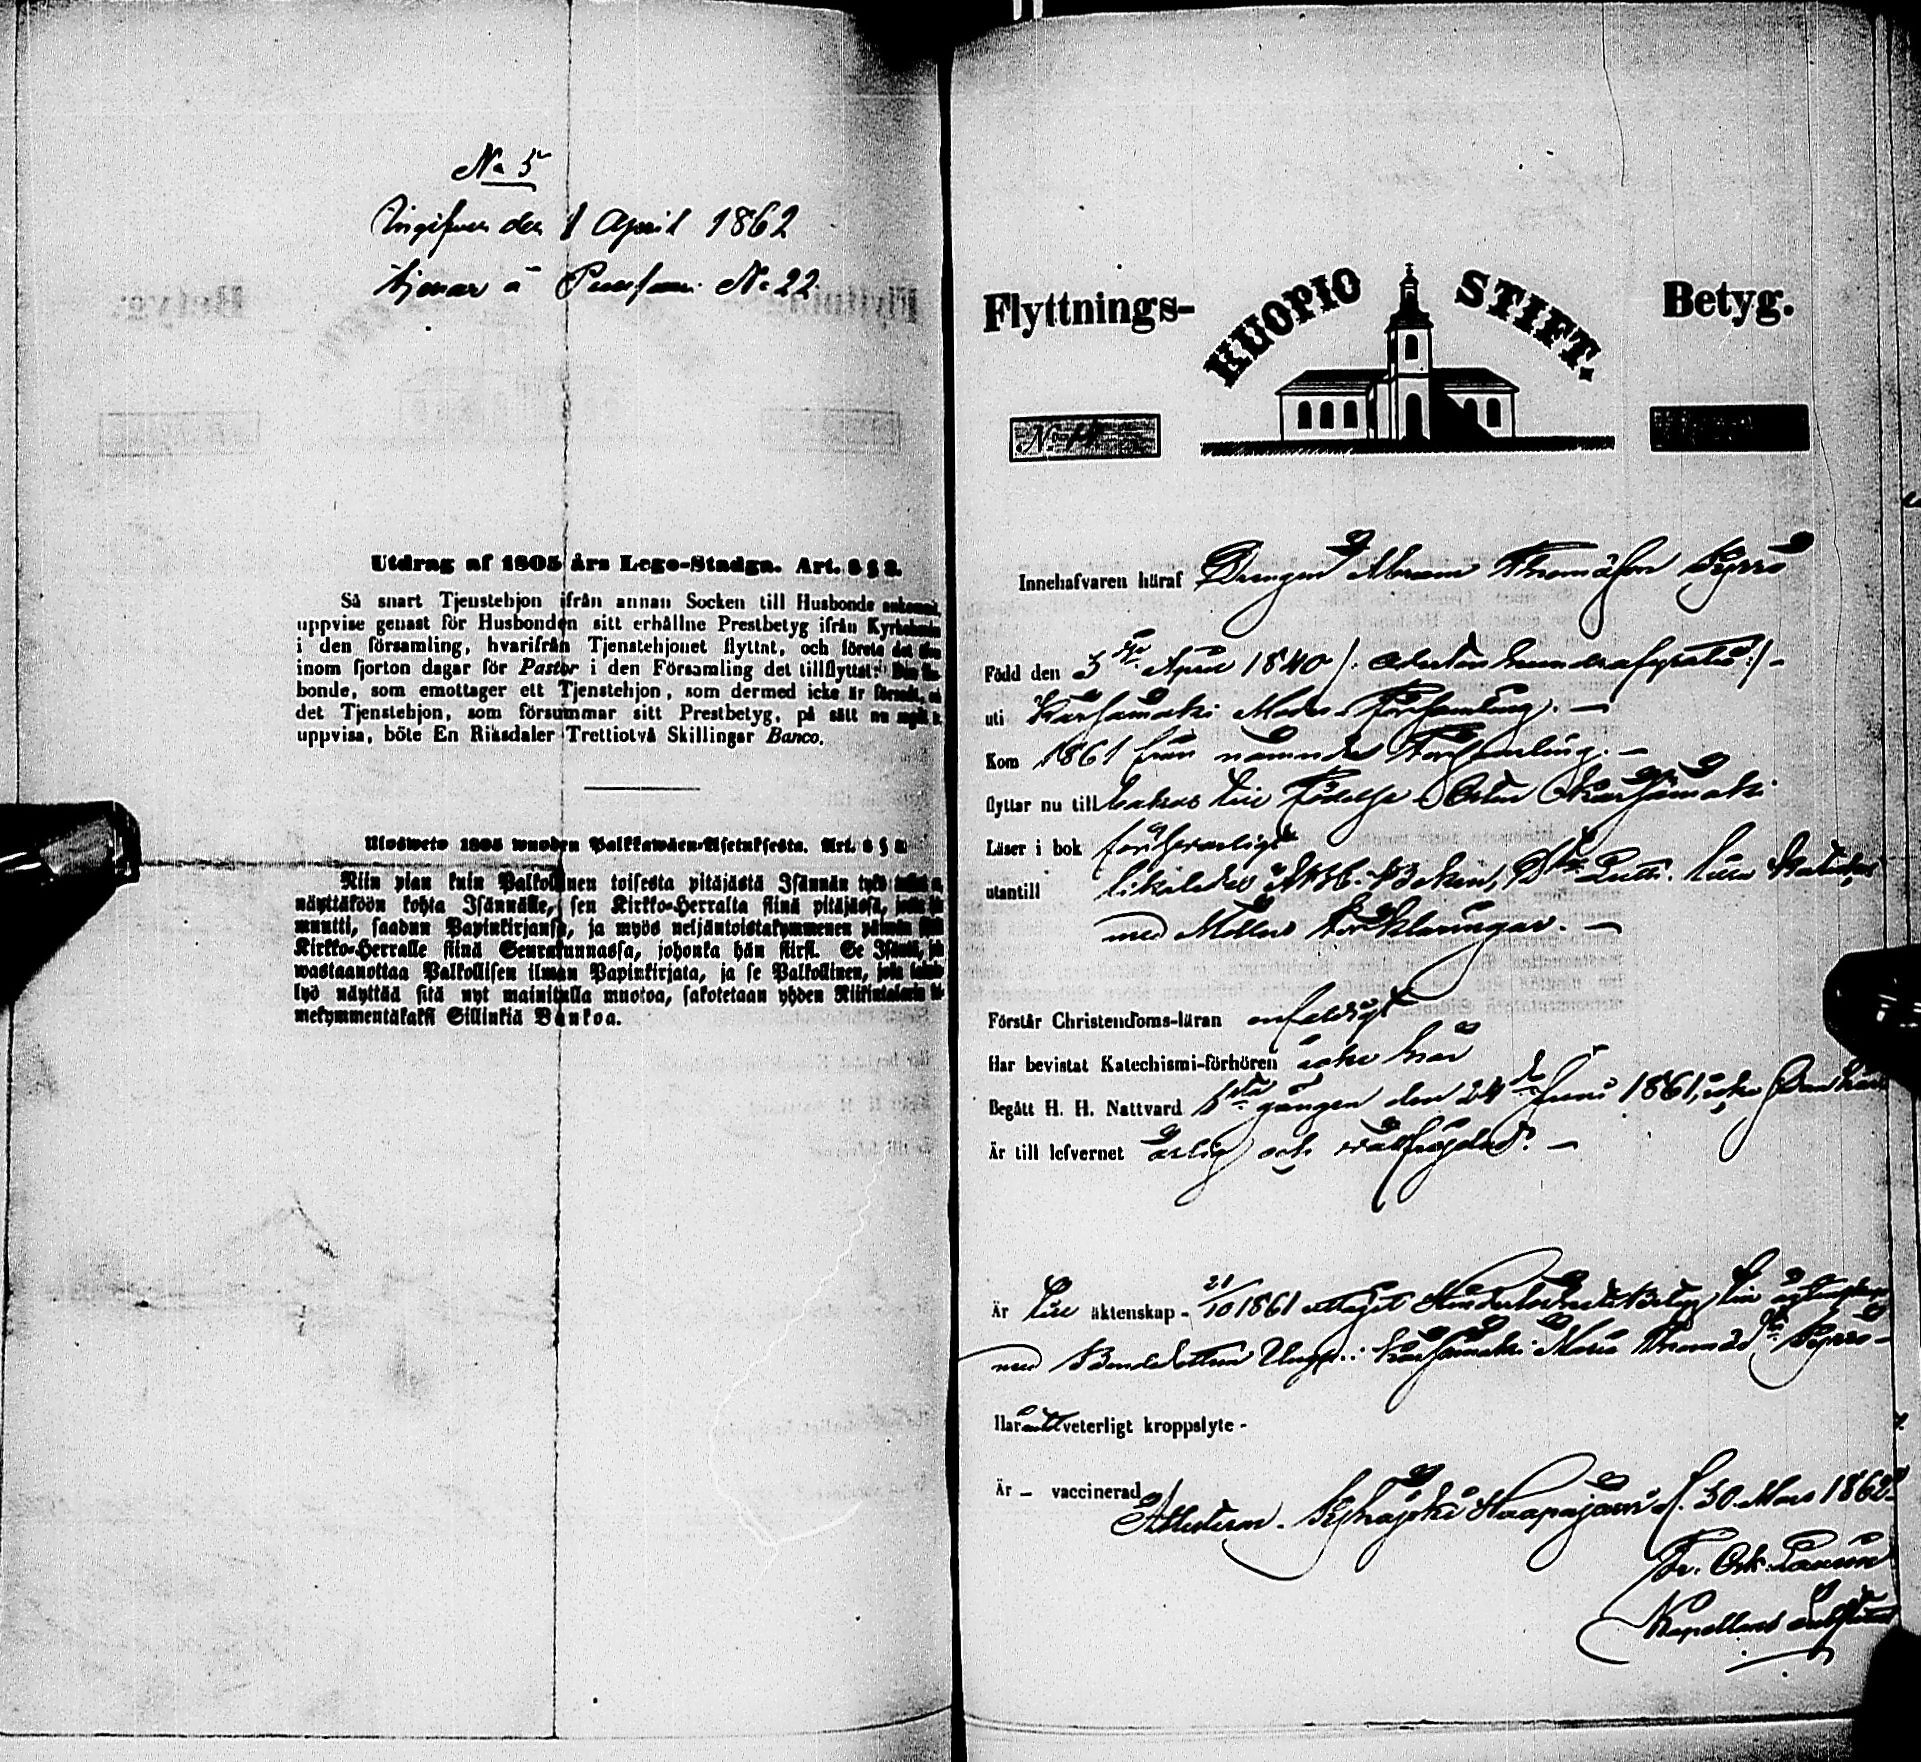 No 5
Ingifven den 1 April 1862
tjenar å No 22
Utdrag af 1805 års Lego-Stadga. Art. 8 § 8.
Så snart Tjenstehjon ifrån annan Socken till Husbonde
uppvise genast för Husbonden sitt erhållne Prestbetyg ifrån
i den församling, hvarifrån Tjenstehjonet flyttat, och
inom fjorton dagar för Pastor i den Församling det tillflyttat:
bonde, som emottager ett Tjenstehjon, som dermed icke är
det Tjenstehjon, som försummar sitt Prestbetyg, på sätt nu
uppvisa, böte En Riksdaler Trettiotvå Skillingar Banco.
Ulosweto 1805 wuoden Palkkawäen-Asetuksesta. Art. 8 § 8.
Niin pian kuin Palkollinen toisesta pitäjästä Isännän tykö
näyttäköön kohta Isännälle, sen Kirkko-Herralta siinä pitäjässä,
muutti, saadun Papinkirjansa, ja myös neljäntoistakymmenen päiwän
Kirkko-Herralle siinä Seurakunnassa, johonka hän siirsi. Se
wastaanottaa Palkollisen ilman Papinkirjata, ja se Palkollinen,
lyö näyttää sitä nyt mainitulla muotoa, sakotetaan yhden Riikintalarin
mekymmentäkaksi Sillinkiä Bankoa.
Flyttnings- KUOPIO STIFT. Betyg.
No
Innehafvaren häraf Drengen Abram Thomasson Pyrrö
Född den 5 April 1840 /: Adertonhundrafyratio :/ -
uti Kärsämäki Moder Församling. -
Kom 1861 från nämnde Församling. -
flyttar nu till bakas till Födelse Orten Kärsämäki
Läser i bok försvarligt
utantill likaledes
med Möllers Förklaringar. -
Förstår Christendoms-läran enfaldigt
Har bevistat Katechismi-förhören icke här
Begått H. H. Nattvard gången den 24 Juni 1861, icke
Är till lefvernet ärlig och välfrejdad. -
Är till äktenskap - 21/10 1861 uttagit Hinderlöshets Betyg till
med Bondedottren Kärsämäki Maria Thomas Pyrrö -
Har intet veterligt kroppslyte -
Är - vaccinerad
Attesterar. Haapajärvi d. 30 Mars 1862
Kapellans